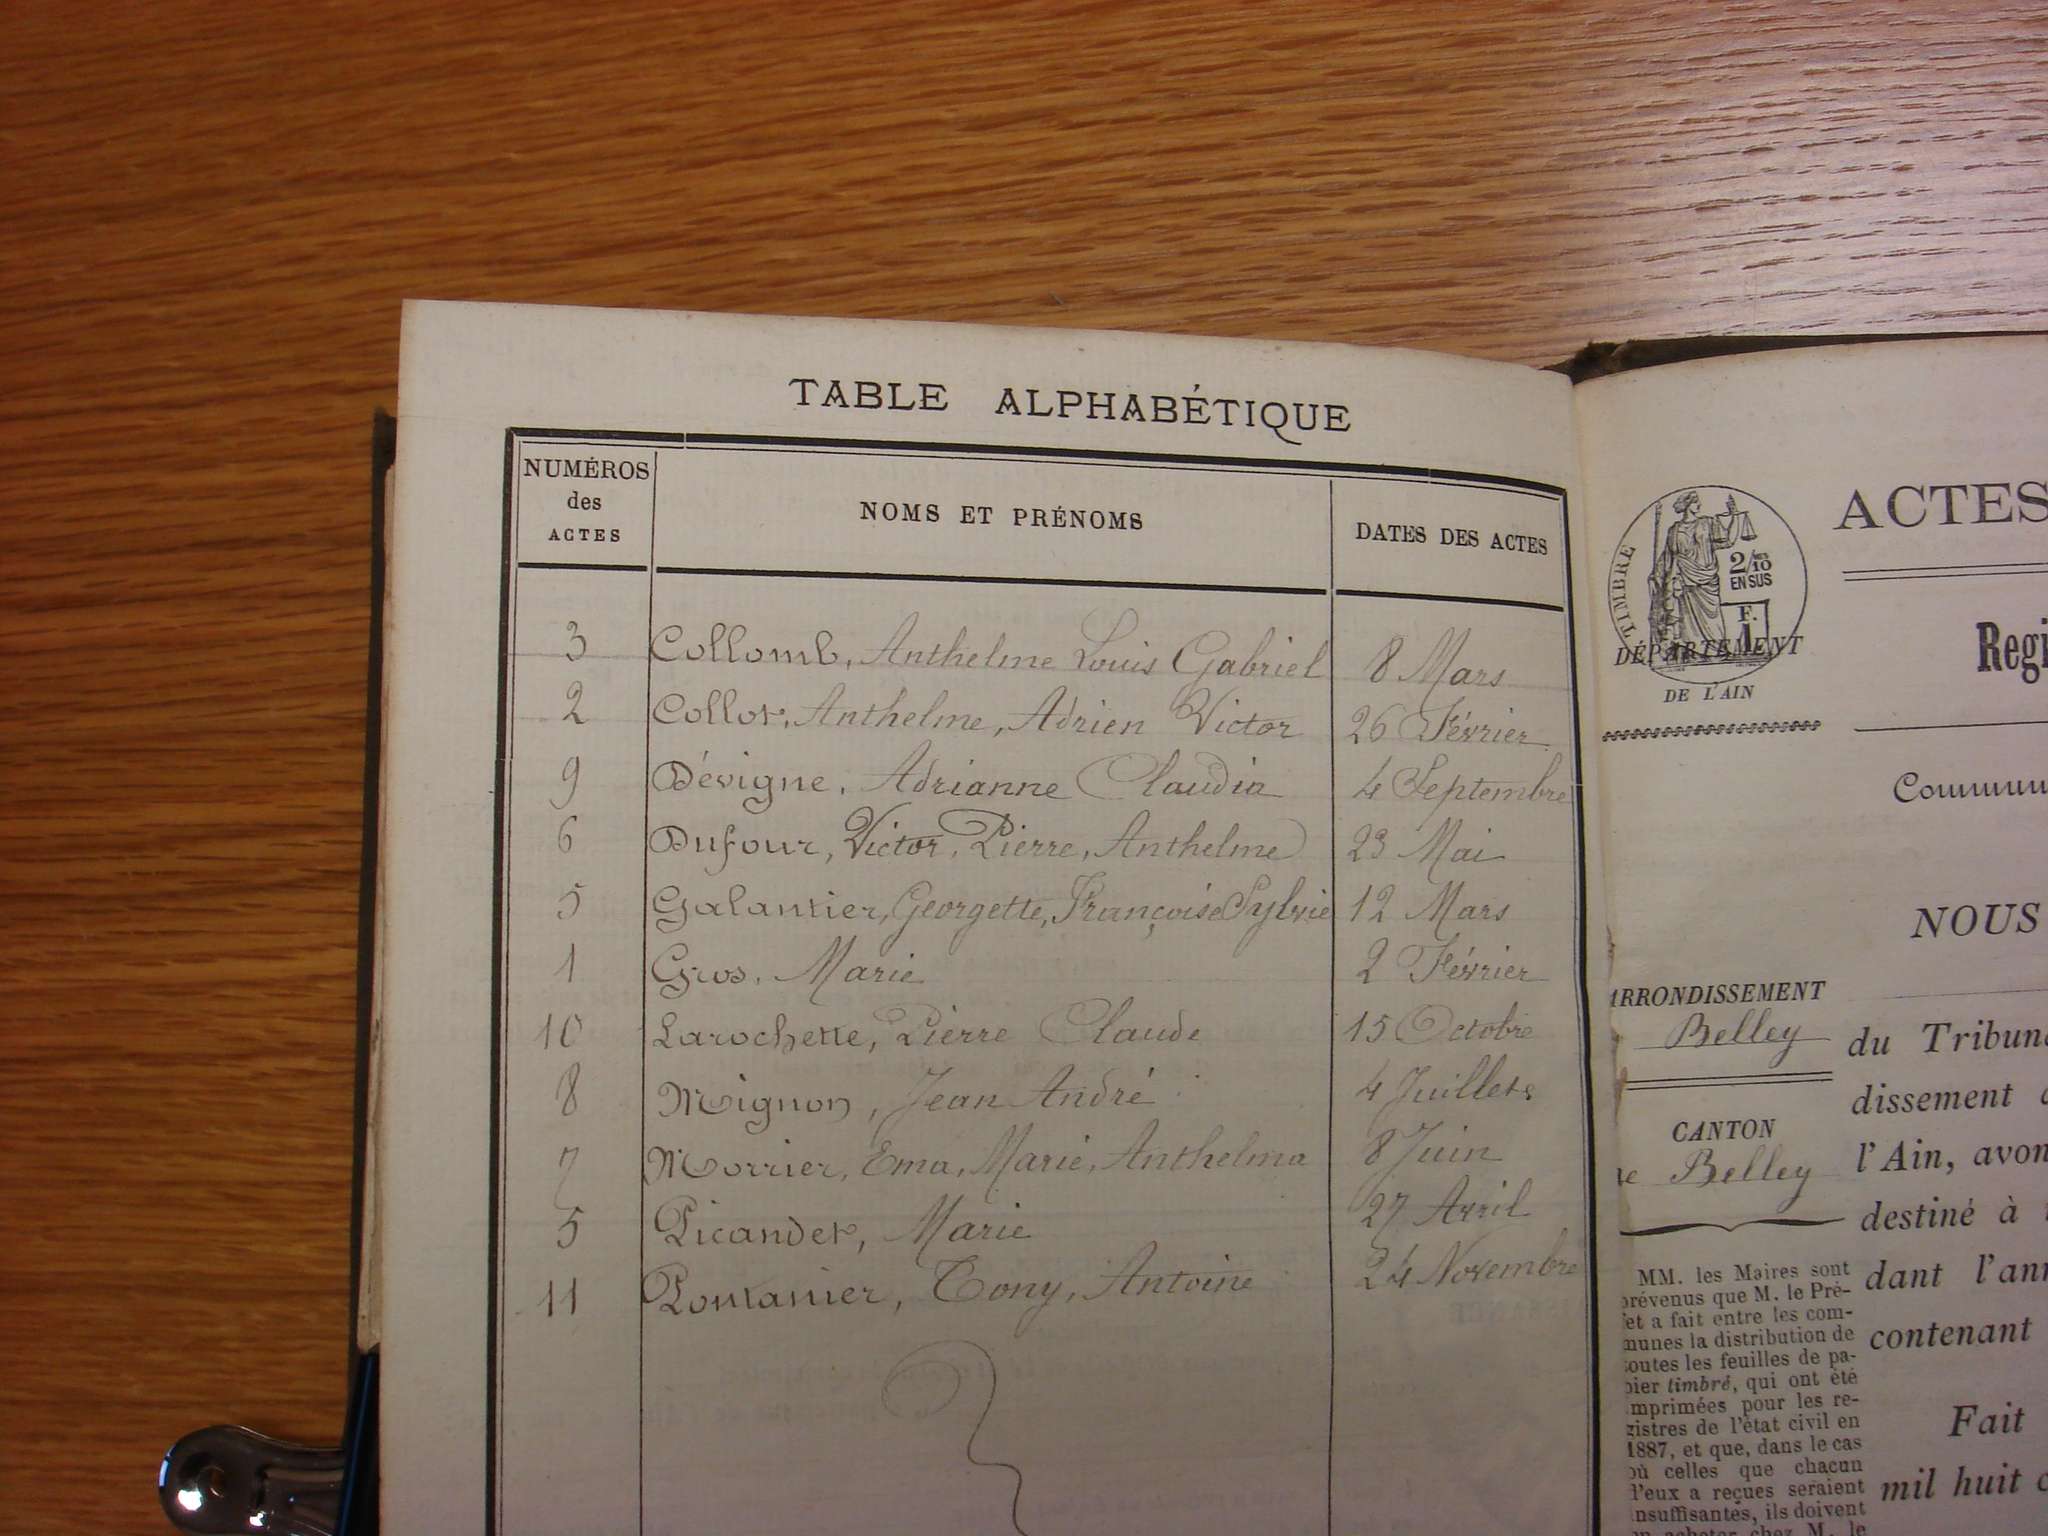 TABLE ALPHABÉTIQUE
NUMÉROS
des
ACTES
NOMS ET PRÉNOMS
DATES DES ACTES
3 Collomb, Anthelme Louis Gabriel 8 Mars
2 Collot, Anthelme, Adrien Victor 26 Février
9 Dévigne, Adrianne Claudia 4 Septembre
6 Dufour, Victor, Pierre, Anthelme 23 Mai
5 Galantier, Georgette, Françoise Sylvie 12 Mars
1 Gros, Marie 2 Février
10 Larochette, Pierre Claude 15 Octobre
8 Mignon, Jean André 4 Juillet
7 Morrier, Ema, Marie, Anthelma 8 Juin
5 Picandet, Marie 27 Avril
11 Tony, Antoine 24 Novembre
ACTES
TIMBRE
2/10
EN SUS
F.
1
DÉPARTEMENT
DE L'AIN
Regi
Commun
NOUS
ARRONDISSEMENT
Belley
du Tribuna
dissement
CANTON
Belley
l'Ain, avon
destiné à
MM. les Maires sont
prévenus que M. le Pré-
fet a fait entre les com-
munes la distribution de
toutes les feuilles de pa-
pier timbré, qui ont été
imprimées pour les re-
gistres de l'état civil en
1887, et que, dans le cas
où celles que chacun
d'eux a reçues seraient
insuffisantes, ils doivent
en acheter chez M. le
dant l'ann
contenant
Fait
mil huit c